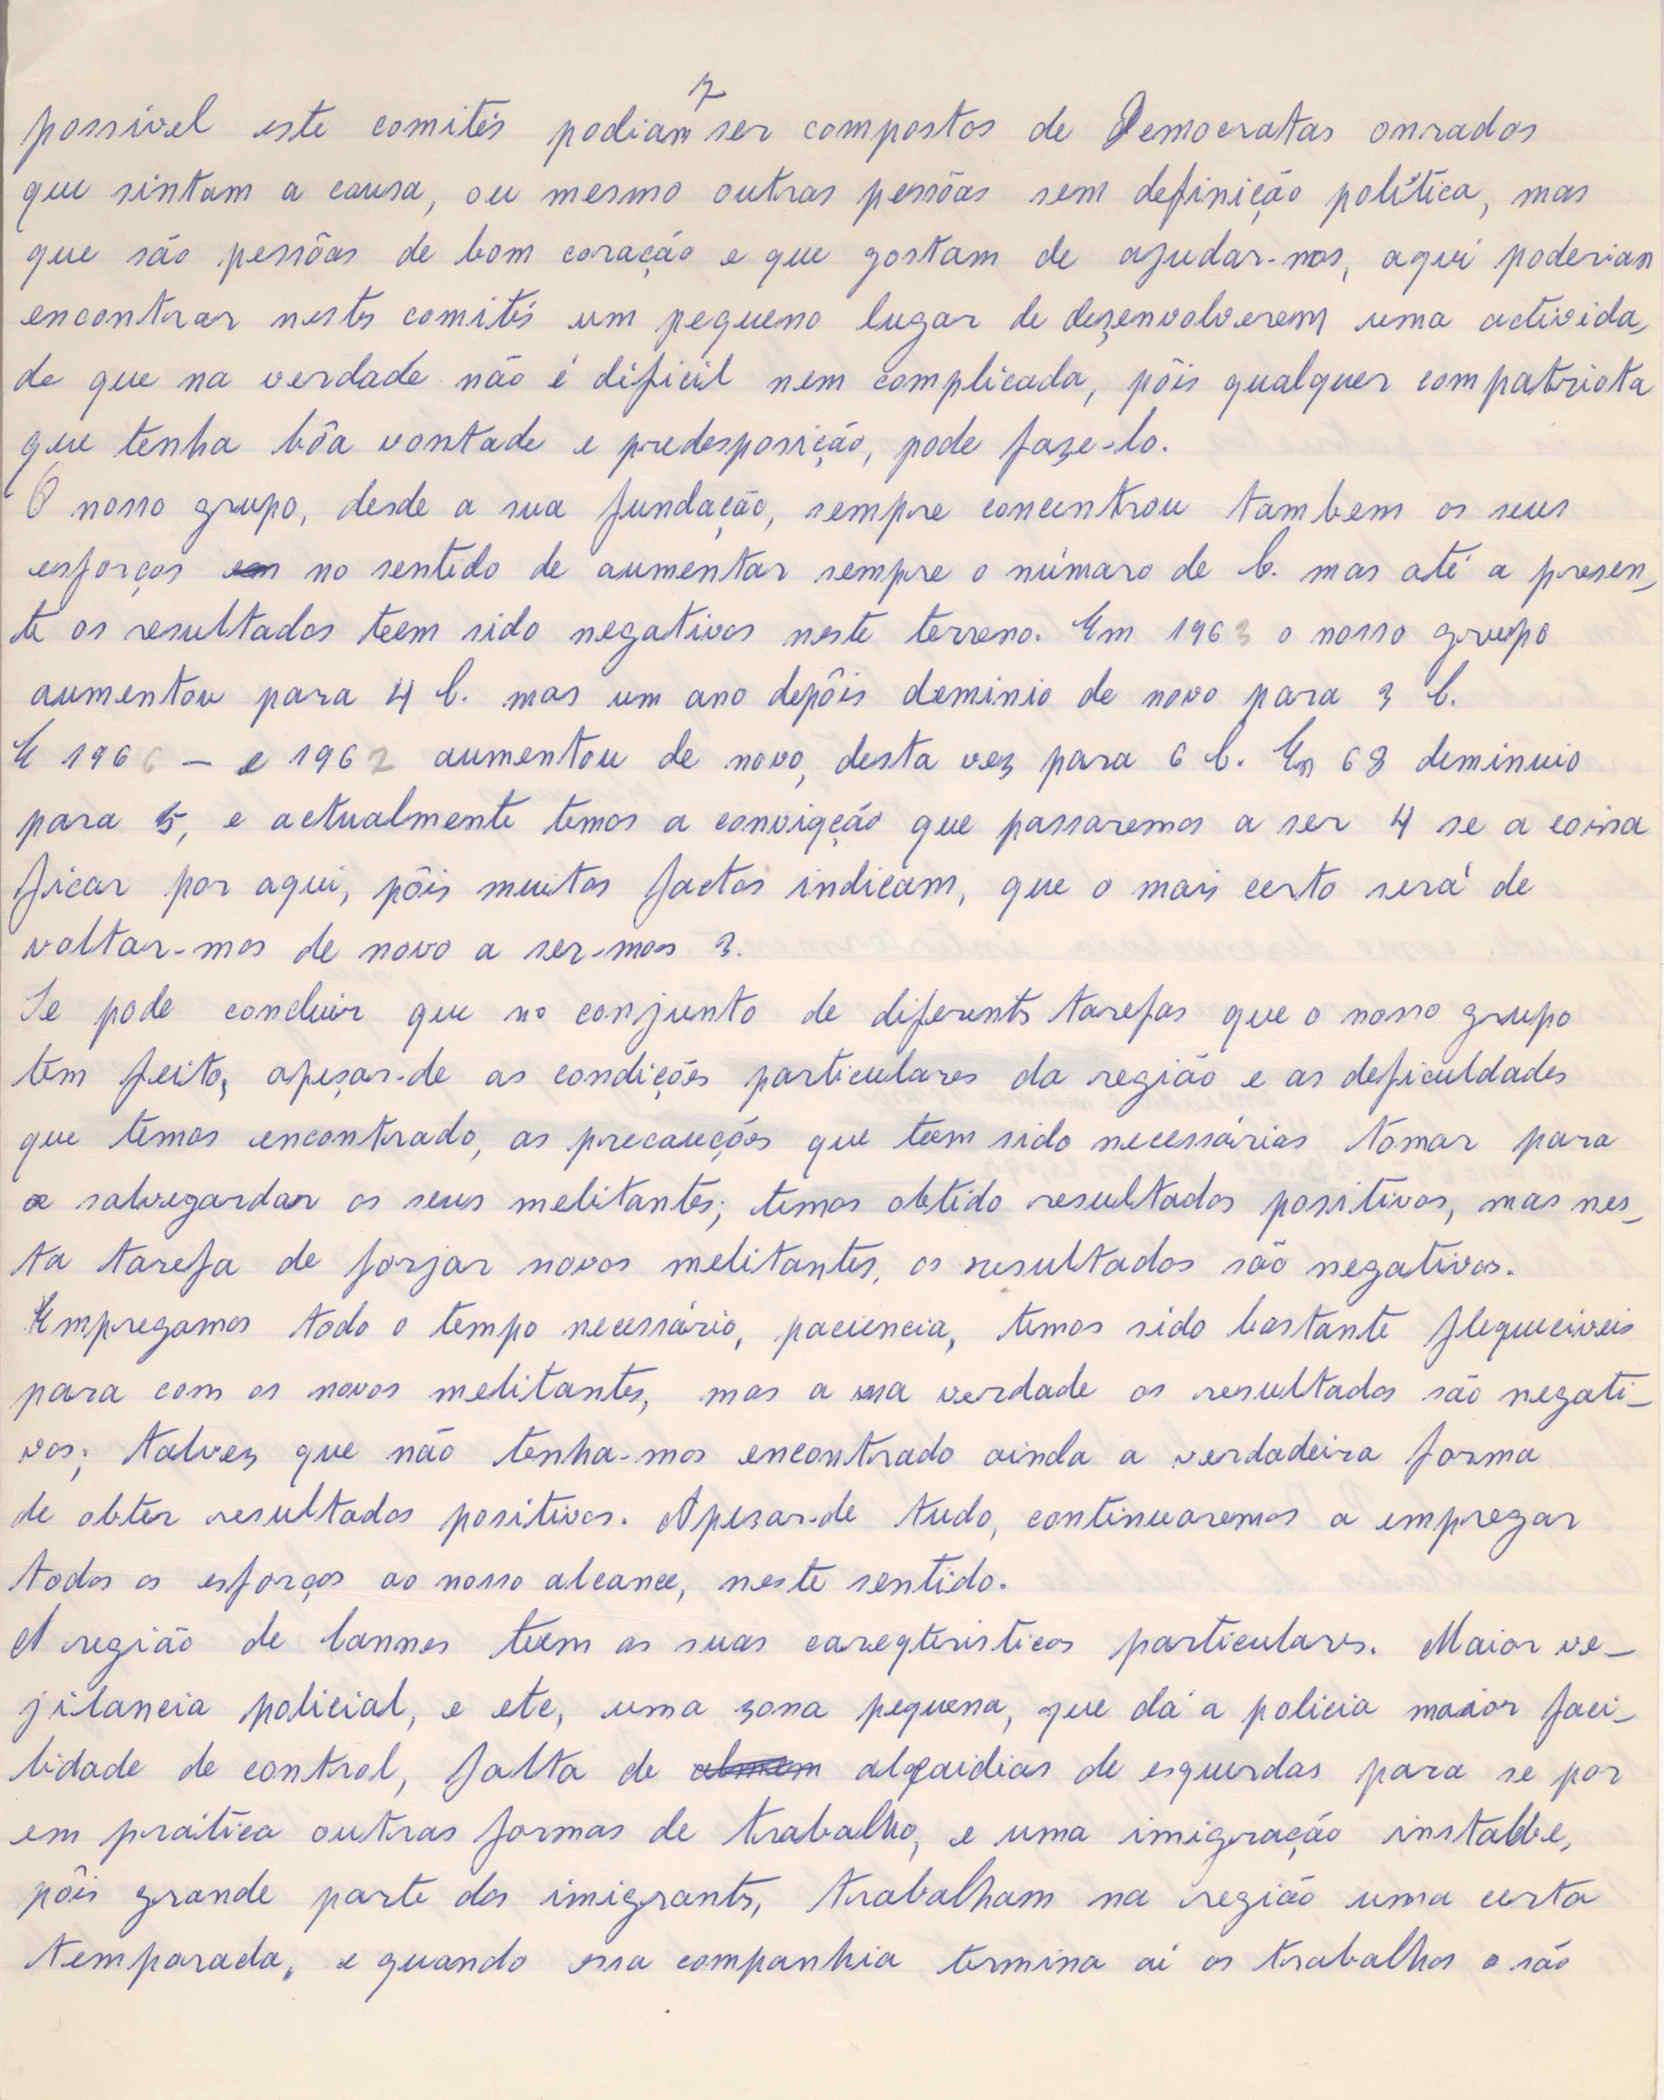 7
possivel este comités podiam ser compostos de Democratas onrados
que sintam a causa, ou mesmo outras pessôas sem definição política, mas
que são pessôas de bom coração e que gostam de ajudar-nos, aqui poderiam
encontrar nestes comités um pequeno lugar de dezenvolverem uma activida-
de que na verdade não é dificil nem complicada, pôis qualquer compatriota
que tenha bôa vontade e predesposição, pode faze-lo.
O nosso grupo, desde a sua fundação, sempre concentrou tambem os seus
esforços em no sentido de aumentar sempre o númaro de C. mas até a presen-
te os resultados teem sido negativos neste terreno. Em 1963 o nosso grupo
aumentou para 4 C. mas um ano depôis deminio de novo para 3 C.
E 1966 - e 1967 aumentou de novo, desta vez para 6 C. En 68 deminuio
para 5, e actualmente temos a convigção que passaremos a ser 4 se a coisa
ficar por aqui, pôis muitos factos indicam, que o mais certo será de
voltar-mos de novo a ser-mos 3.
Se pode concluir que no conjunto de diferentes tarefas que o nosso grupo
tem feito, apesar-de as condições particulares da região e as deficuldades
que temos encontrado, as precauções que teem sido necessárias tomar para
salvegardar os seus melitantes; temos obtido resultados positivos, mas nes-
ta tarefa de forjar novos melitantes, os resultados são negativos.
Empregamos todo o tempo necessário, paciencia, temos sido bastante flequeiveis
para com os novos melitantes, mas a verdade os resultados são negati-
vos; talvez que não tenha-mos encontrado ainda a verdadeira forma
de obter resultados positivos. Apesar-de tudo, continuaremos a empregar
todos os esforços ao nosso alcance, neste sentido.
A região de Cannes teem as suas careqteristicas particulares. Maior ve-
jilancia policial, e etc, uma zona pequena, que dá a policia maior faci-
lidade de control, falta de alçaidias de esquerdas para se por
em prática outras formas de trabalho, e uma imigração instalbe,
pôis grande parte dos imigrantes, trabalham na região uma certa
temparada, e quando essa companhia termina aí os trabalhos o são